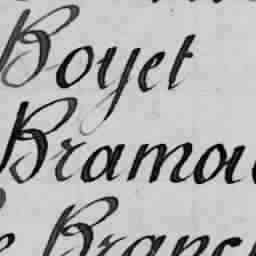 Boyet
Bramou
e Branc